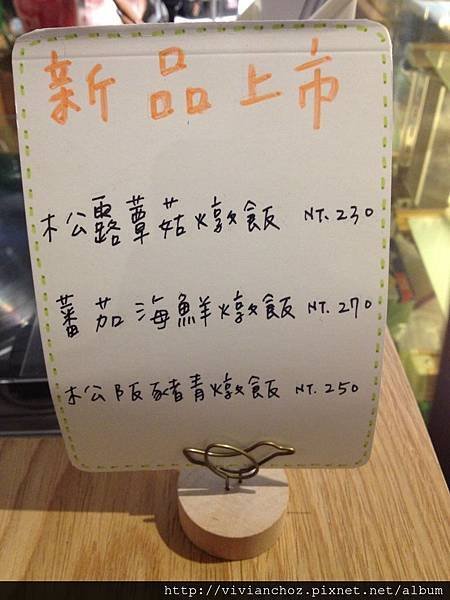 新品上市
松露蕈菇燉飯 NT.230
蕃茄海鮮燉飯 NT.270
松阪豬青燉飯 NT.250
http://vivianchoz.pixnet.net/album